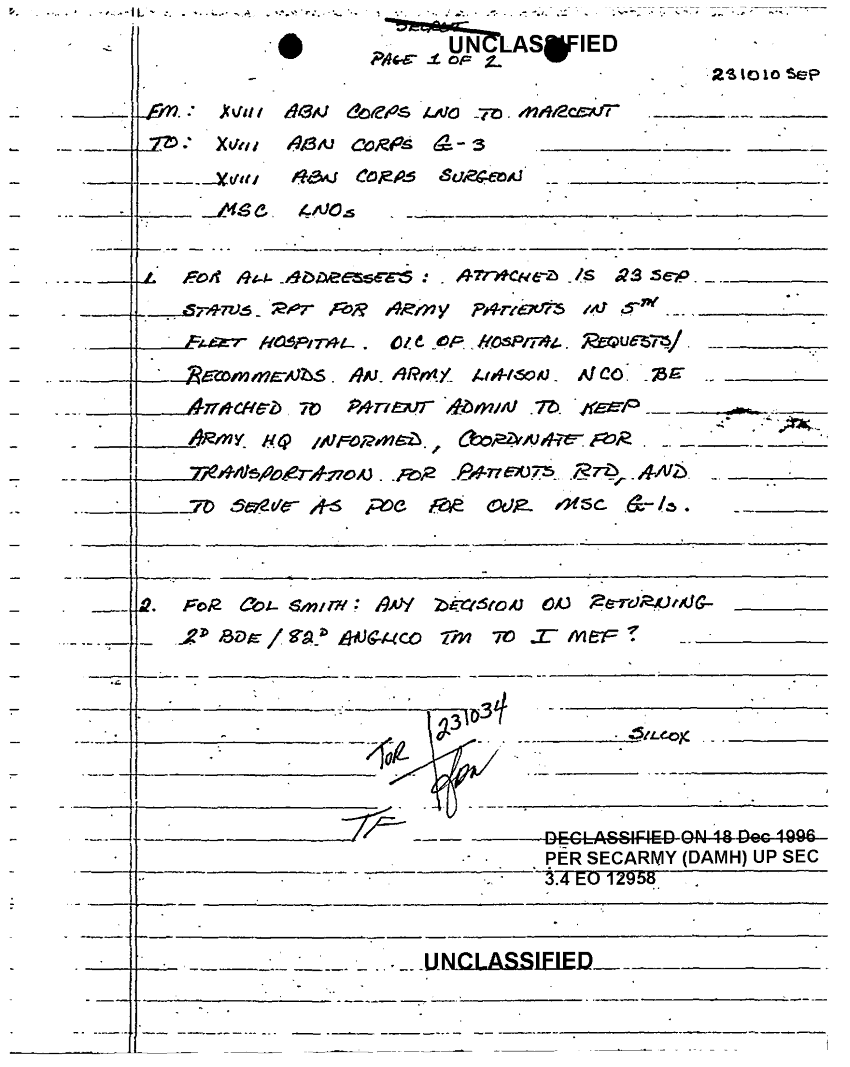 SECRET
UNCLASSIFIED
PAGE 1 OF 2
231010 SEP
FM: XVIII ABN CORPS LNO TO MARCENT
TO: XVIII ABN CORPS G-3
XVIII ABN CORPS SURGEON
MSC LNOs
1. FOR ALL ADDRESSEES: ATTACHED IS 23 SEP
STATUS RPT FOR ARMY PATIENTS IN 5TH
FLEET HOSPITAL. OIC OF HOSPITAL REQUESTS/
RECOMMENDS AN ARMY LIAISON NCO BE
ATTACHED TO PATIENT ADMIN TO KEEP
ARMY HQ INFORMED, COORDINATE FOR
TRANSPORTATION FOR PATIENTS RTD, AND
TO SERVE AS POC FOR OUR MSC G-1s.
2. FOR COL SMITH: ANY DECISION ON RETURNING
2D BDE / 82D ANGLICO TM TO I MEF?
231034
SILCOX
TOR
TF
DECLASSIFIED ON 18 Dec 1996
PER SECARMY (DAMH) UP SEC
3.4 EO 12958
UNCLASSIFIED